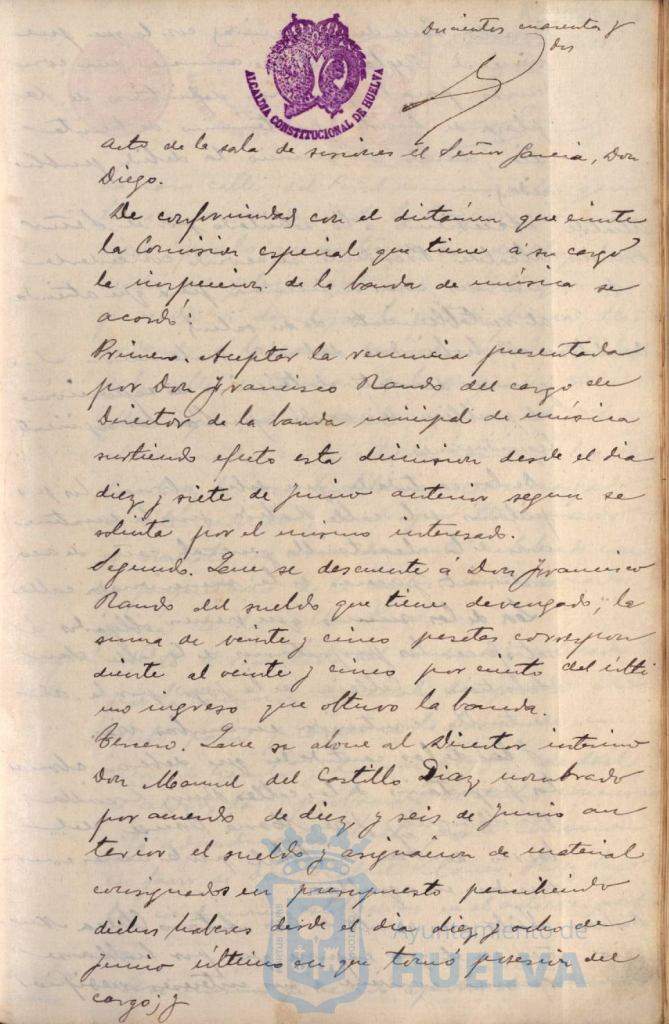 Doscientos cuarenta y
dos
ALCALDIA CONSTITUCIONAL DE HUELVA
acto de la sala de sesiones el Señor Garcia, Don
Diego.
De conformidad con el dictámen que emite
la Comision especial que tiene á su cargo
la inspeccion de la banda de música se
acordó:
Primero. Aceptar la renuncia presentada
por Don Francisco Rando del cargo de
Director de la banda municipal de música
surtiendo efecto esta dimision desde el dia
diez y siete de Junio anterior segun se
solicita por el mismo interesado.
Segundo. Que se descuente á Don Francisco
Rando del sueldo que tiene devengado, la
suma de veinte y cinco pesetas correspon
diente al veinte y cinco por ciento del últi
mo ingreso que obtuvo la banda.
Tercero. Que se abone al Director interino
Don Manuel del Castillo Diaz nombrado
por acuerdo de diez y seis de Junio an
terior el sueldo y asignacion de material
consignados en presupuesto percibiendo
dichos haberes desde el dia diez y ocho de
Junio último en que tomó posesion del
cargo; y
Ayuntamiento de
HUELVA